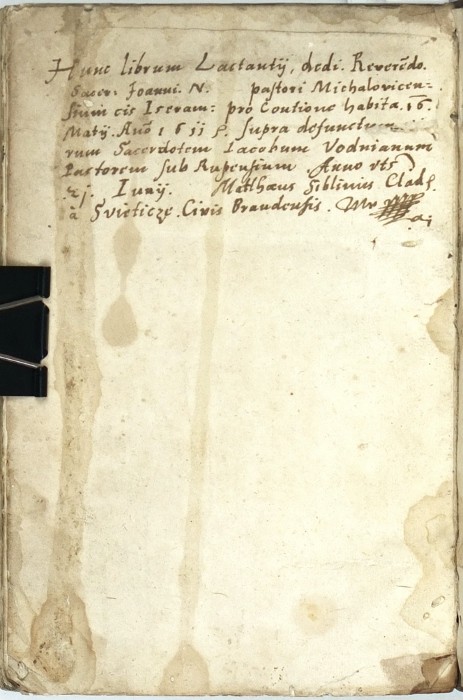 Hunc librum Lactantij, dedi. Reverēdo.
Sacer: Joanni. N. pastori Michalovicen=
sium cis Iseram: pro Contione habita. 16
Maij. Año 1611 supra defunctum
rum Sacerdotem Iacobum Vodnianum
Pastorem sub Rupensium. Anno vts
Iunij. Matthæus Siblinius Clad
a Svieticze. Civis Braudensis. Mp